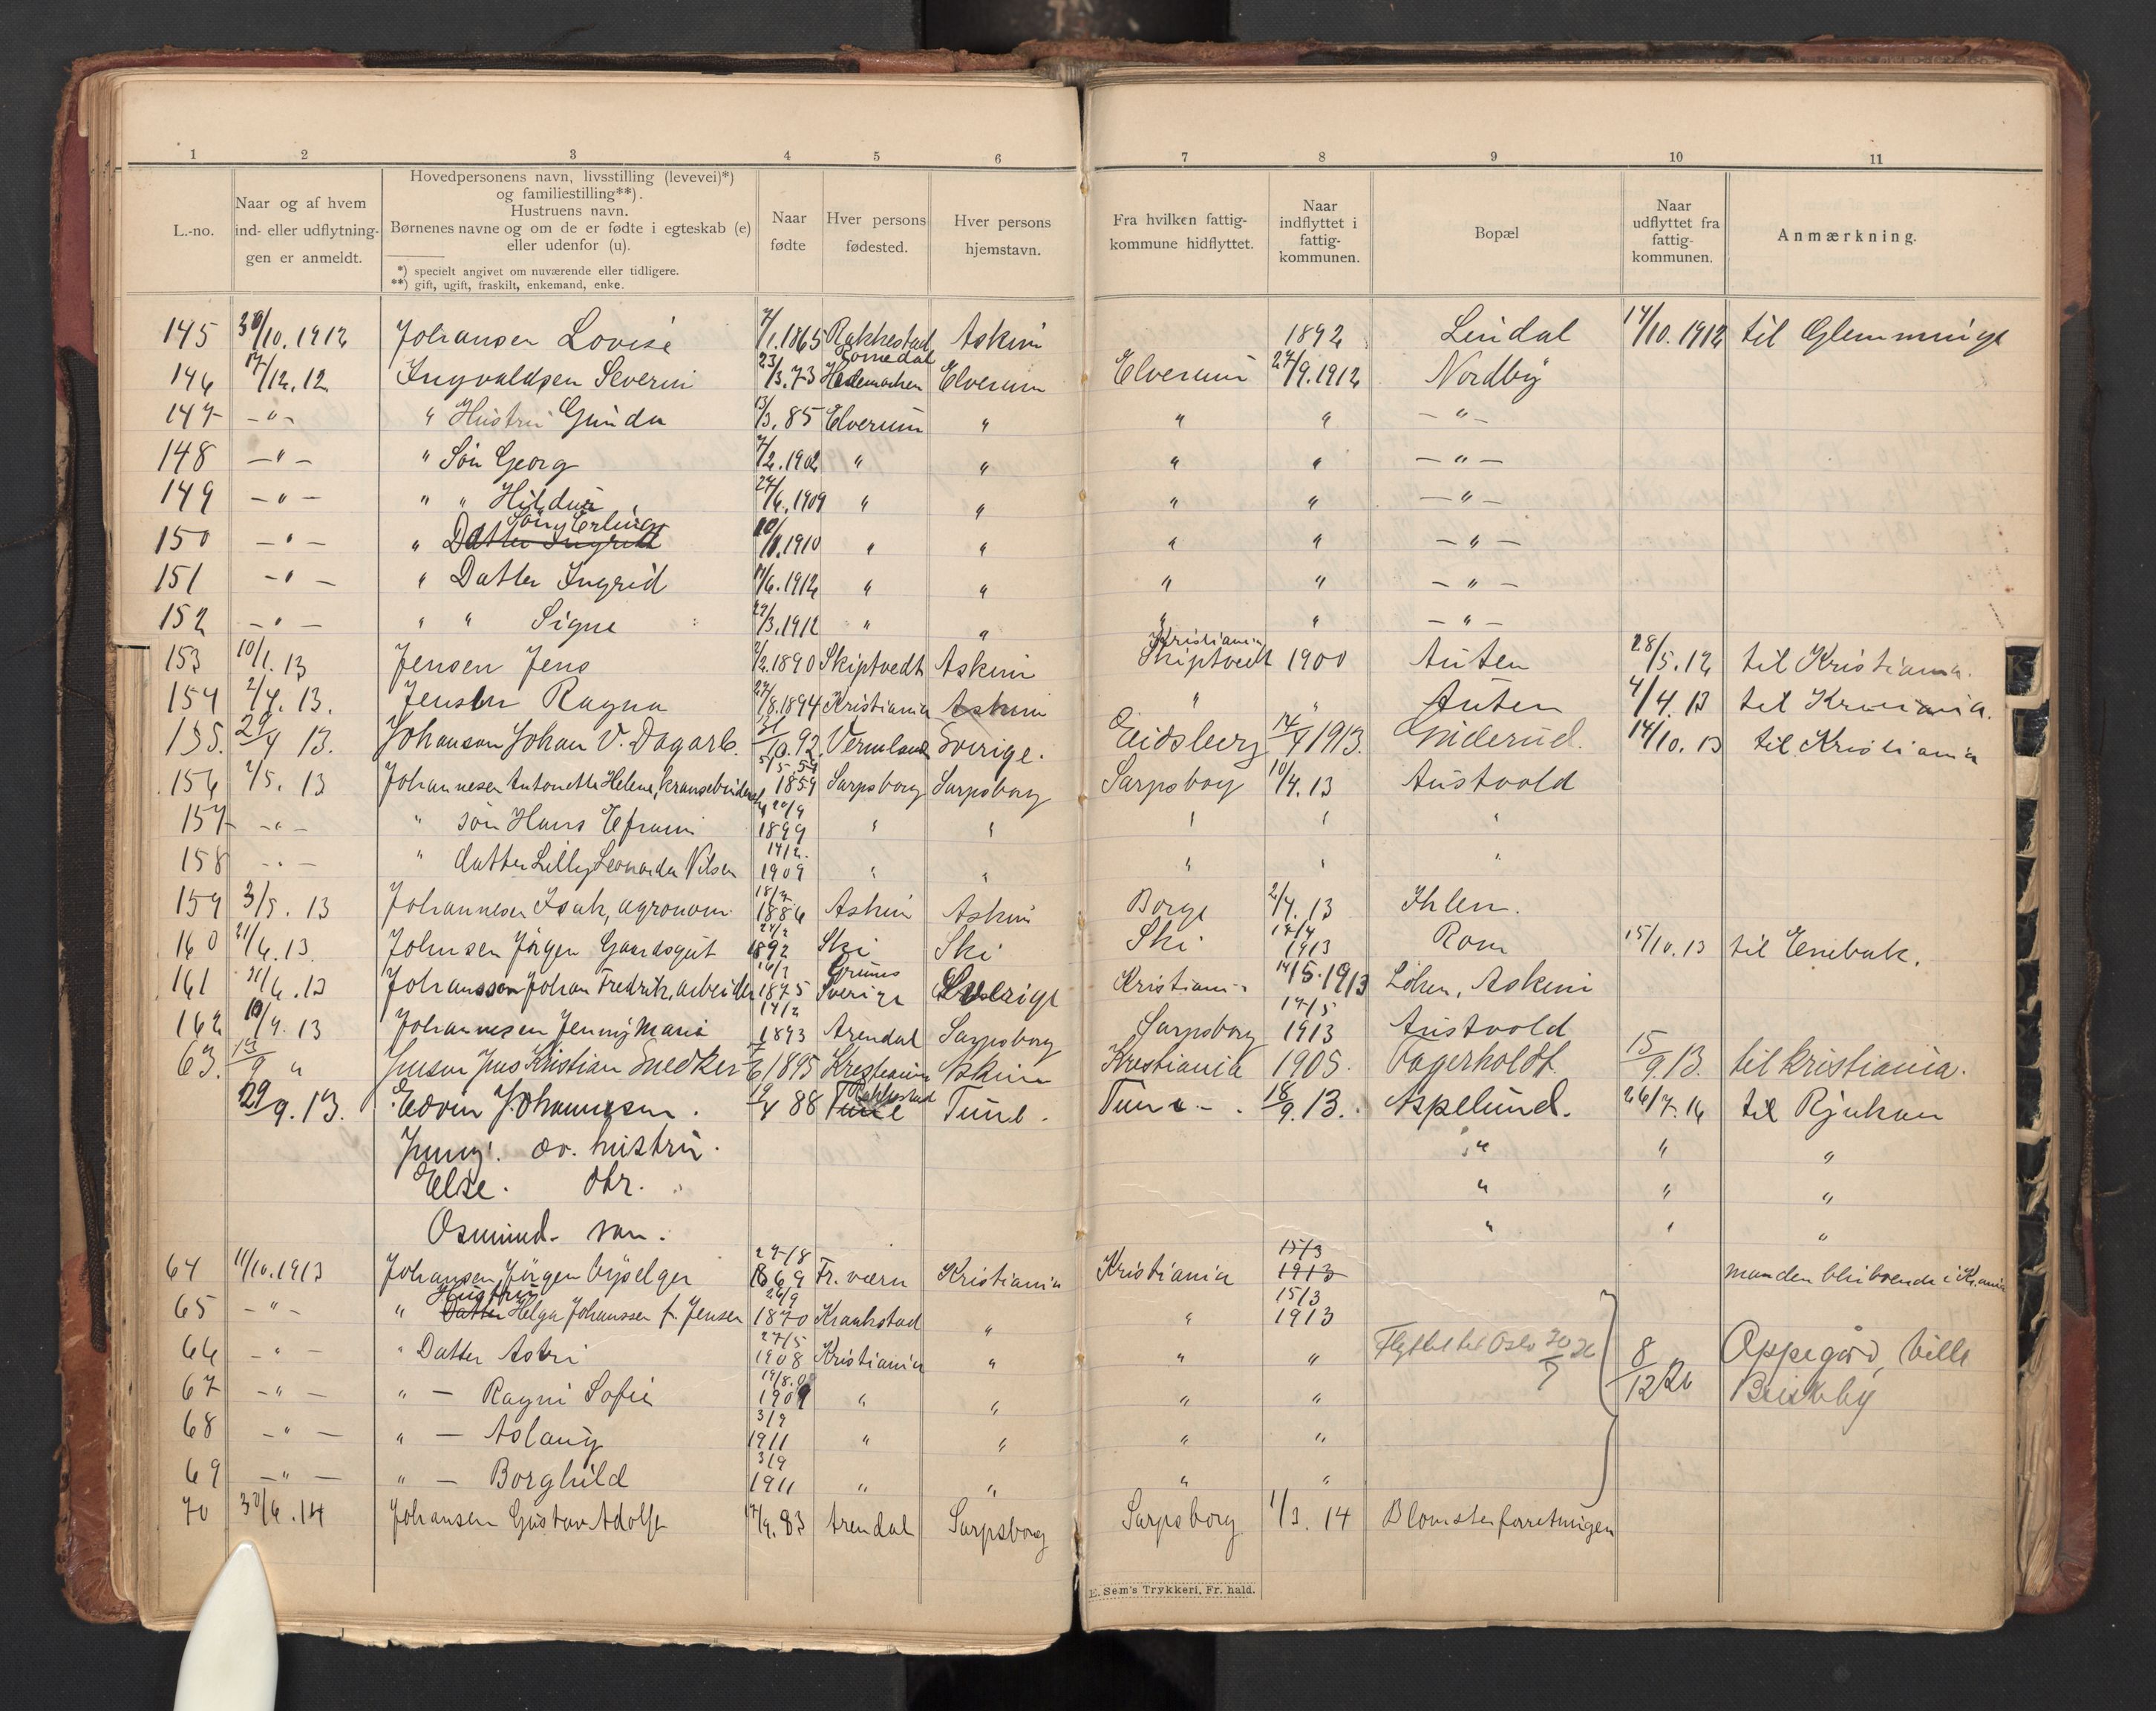 1 2 3 4 5 6 7 8 9 10 11
L.-no.
Naar og af hvem
ind- eller udflytnin-
gen er anmeldt.
Hovedpersonens navn, livsstilling (levevei)*)
og familiestilling**).
Hustruens navn.
Børnenes navne og om de er fødte i egteskab (e)
eller udenfor (u).
*) specielt angivet om nuværende eller tidligere.
**) gift, ugift, fraskilt, enkemand, enke.
Naar
fødte
Hver persons
fødested.
Hver persons
hjemstavn.
Fra hvilken fattig-
kommune hidflyttet.
Naar
indflyttet i
fattig-
kommunen.
Bopæl
Naar
udflyttet fra
fattig-
kommunen.
Anmærkning.
145 30/10.1912 Johansen Lovise 7/1.1865 Rakkestad Askim 1892 Lindal 14/10.1912 til Glemminge
146 17/12.12 Ingvaldsen Severin 23/3.73 Romedal Hedemarken Elverum Elverum 27/9.1912 Nordby
147 -"- " Hustru Gunda 13/3.85 Elverum " " " -"-
148 -"- " Søn Georg 7/2.1902 " " " " -"-
149 -"- " " Hildur 27/6.1909 " " " " -"-
150 -"- " Datter Ingrid Søn Erling 10/11.1910 " " " " -"-
151 -"- " Datter Ingrid 17/6.1912 " " " " -"-
152 -"- " " Signe 29/3.1912 " " " " -"-
153 10/1.13 Jensen Jens 7/2.1890 Skiptvedt Askim Kristiania Skiptvedt 1900 Auten 28/5.12 til Kristiania.
154 2/4.13. Jensen Ragna 27/8.1894 Kristiania Askim " " Auten 4/4.13 til Kristiania.
155. 29/4 13. Johanson Johan V. Dagarb. 31/10.92 Vermland Sverige. Eidsberg 14/4 1913. Guderud. 14/10.13 til Kristiania
156 7/5.13 Johannesen Antonette Helene, kransebinderske 5/5 54 1854 Sarpsborg Sarpsborg Sarpsborg 10/4.13 Austvold
157 -"- " søn Hans Efraim 20/9 1899 " " " " "
158 -"- " datter Lilly Leonarda Nilsen 14/2. 1909 " " " " "
159 3/5.13 Johannesen Isak, agronom. 1886 Askim Askim Borge 2/4.13 Ihlen.
160 21/6.13. Johnsen Jørgen Gaardsgut 1892 Ski Ski Ski 1913 Rom 15/10.13 til Enebak.
161 21/6.13 Johansson Johan Fredrik, arbeider 16/1 1875 Grums Sverige Sverige Kristiania 14/5.1913 Löken, Askim
162 10/9.13 Johannesen Jenny Marie 14/2 1893 Arendal Sarpsborg Sarpsborg 14/5 1913 Austvold
63. 13/9 " Jensen Jens Kristian Snedker 7/6 1895 Kristiania Askim Kristiania 1905. Fagerholdt. 15/9 13. til kristiania.
29/9.13. Edvin Johannesen. 9/4 88 Tune Rakkestad Tune. Tune. 18/9.13. Aspelund. 26/7.16 til Rjukan
Jenny. do. hustru. " " "
Else. dtr. " " "
Osmund. søn. " " "
64 11/10.1913 Johansen Jörgen byselger 27/8 1869 Fr.værn Kristiania Kristiania 15/3 1913 manden blir boende i Kr.ania
65 -"- " Datter Hustru Helga Johanssen f. Jensen 26/9 1870 Kraakstad " " 15/3 1913
66 -"- " Datter Astri 27/5 1908 Kristiania " " " Flyttet til Oslo 20/7 26 8/12 26 Oppegård, Villa
67 -"- " - Ragni Sofie 19/8.09 1909 " " " " Briskeby
68 -"- " - Aslaug 3/9 1911 " " " "
69 -"- " - Borghild 3/9 1911 " " " "
70 30/6.14 Johansen Gustav Adolf 17/9.83 Arendal Sarpsborg Sarpsborg 1/3.14 Blomsterforretningen
E. Sem's Trykkeri, Fr. hald.